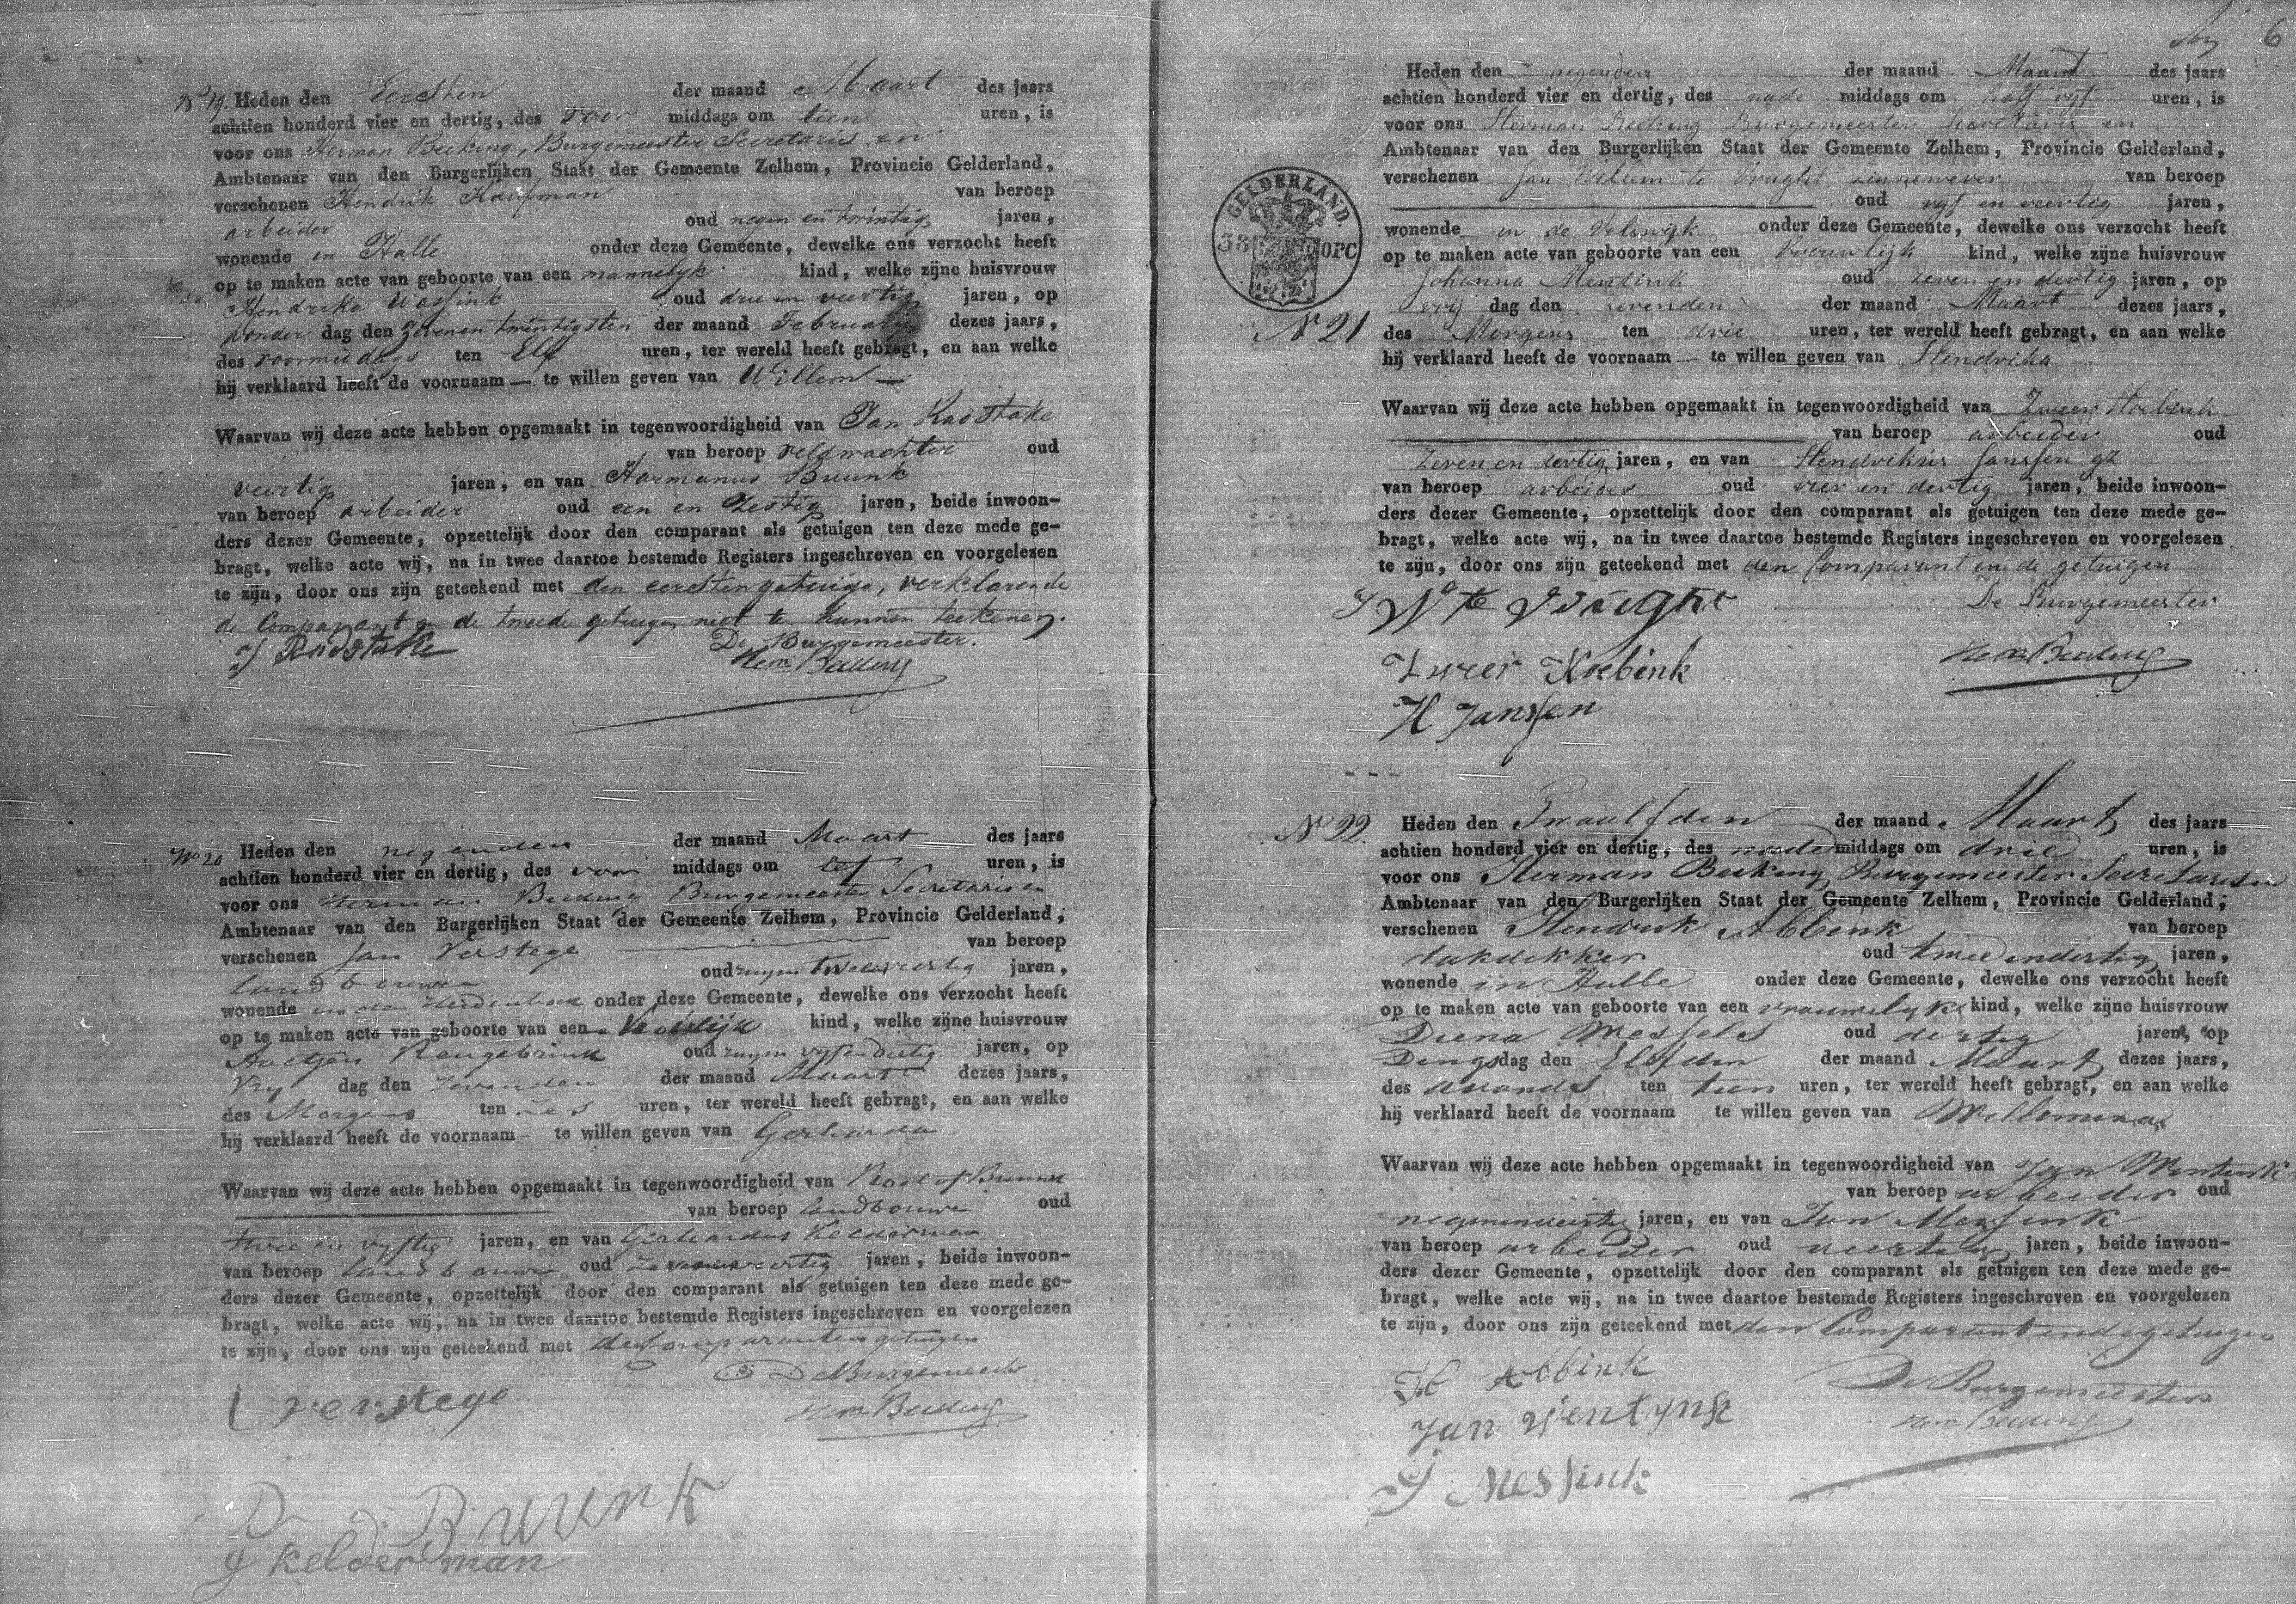 No 19. Heden den Eersten der maand Maart des jaars
achtien honderd vier en dertig, des voor middags om tien uren, is
voor ons Herman Becking, Burgemeester Secretaris en
Ambtenaar van den Burgerlijken Staat der Gemeente Zelhem, Provincie Gelderland,
verschenen Hendrik Kaapman van beroep
arbeider oud negen en twintig jaren,
wonende in Halle onder deze Gemeente, dewelke ons verzocht heeft
op te maken acte van geboorte van een mannelyk kind, welke zijne huisvrouw
Hendrika Wassink oud drie en veertig jaren, op
donder dag den zevenentwintigsten der maand February dezes jaars,
des voormiddags ten Elf uren, ter wereld heeft gebragt, en aan welke
hij verklaard heeft de voornaam — te willen geven van Willem —
Waarvan wij deze acte hebben opgemaakt in tegenwoordigheid van Jan Radstake
van beroep veldwachter oud
veertig jaren, en van Harmanus Buunk
van beroep arbeider oud een en zestig jaren, beide inwoon-
ders dezer Gemeente, opzettelijk door den comparant als getuigen ten deze mede ge-
bragt, welke acte wij, na in twee daartoe bestemde Registers ingeschreven en voorgelezen
te zijn, door ons zijn geteekend met den eersten getuige, verklarende
de Comparant en de tweede getuigen niet te kunnen teekenen.
J Radstake De Burgemeester.
Herm Becking
No 20 Heden den negenden der maand Maart des jaars
achtien honderd vier en dertig, des voor middags om elf uren, is
voor ons Herman Becking Burgemeester Secretaris en
Ambtenaar van den Burgerlijken Staat der Gemeente Zelhem, Provincie Gelderland,
verschenen Jan Verstege van beroep
landbouwer oud ruym twee veertig jaren,
wonende in den Heidenhoek onder deze Gemeente, dewelke ons verzocht heeft
op te maken acte van geboorte van een kind, welke zijne huisvrouw
Aaltjen Rengebrink oud ruym vyfendertig jaren, op
Vry dag den zevenden der maand Maart dezes jaars,
des Morgens ten zes uren, ter wereld heeft gebragt, en aan welke
hij verklaard heeft de voornaam — te willen geven van Gerharda
Waarvan wij deze acte hebben opgemaakt in tegenwoordigheid van Roelof Buunk
van beroep landbouwer oud
twee en vyftig jaren, en van Gerhardus Kelderman
van beroep landbouwer oud veertig jaren, beide inwoon-
ders dezer Gemeente, opzettelijk door den comparant als getuigen ten deze mede ge-
bragt, welke acte wij, na in twee daartoe bestemde Registers ingeschreven en voorgelezen
te zijn, door ons zijn geteekend met de comparant en getuigen
De Burgemeester
J verstege Herm Becking
R Buunk
g kelderman
6
Heden den negenden der maand Maart des jaars
achtien honderd vier en dertig, des nade middags om half vyf uren, is
voor ons Herman Becking Burgemeester Secretaris en
Ambtenaar van den Burgerlijken Staat der Gemeente Zelhem, Provincie Gelderland,
verschenen Jan Willem te Vrught linnenwever van beroep
oud vyf en veertig jaren,
wonende in de Velswyk onder deze Gemeente, dewelke ons verzocht heeft
op te maken acte van geboorte van een Vrouwlyk kind, welke zijne huisvrouw
Johanna Mentink oud zeven en dertig jaren, op
vrij dag den zevenden der maand Maart dezes jaars,
GELDERLAND.
38 OPC
No 21 des Morgens ten drie uren, ter wereld heeft gebragt, en aan welke
hij verklaard heeft de voornaam — te willen geven van Hendrika
Waarvan wij deze acte hebben opgemaakt in tegenwoordigheid van Zweer Koebink
van beroep arbeider oud
zeven en dertig jaren, en van Hendrikus Janssen gz
van beroep arbeider oud vier en dertig jaren, beide inwoon-
ders dezer Gemeente, opzettelijk door den comparant als getuigen ten deze mede ge-
bragt, welke acte wij, na in twee daartoe bestemde Registers ingeschreven en voorgelezen
te zijn, door ons zijn geteekend met den Comparant en de getuigen
J W te Vrught De Burgemeester
Zweer Koebink Herm Becking
H Janssen
No 22. Heden den Twaalfden der maand Maart des jaars
achtien honderd vier en dertig, des nade middags om drie uren, is
voor ons Herman Becking Burgemeester Secretaris en
Ambtenaar van den Burgerlijken Staat der Gemeente Zelhem, Provincie Gelderland,
verschenen Hendrik Abbink van beroep
dakdekker oud twee en dertig jaren,
wonende in Halle onder deze Gemeente, dewelke ons verzocht heeft
op te maken acte van geboorte van een vrouwelyk kind, welke zijne huisvrouw
Diena Wessels oud dertig jaren, op
Dingsdag den Elfden der maand Maart dezes jaars,
des avonds ten tien uren, ter wereld heeft gebragt, en aan welke
hij verklaard heeft de voornaam te willen geven van Willemina
Waarvan wij deze acte hebben opgemaakt in tegenwoordigheid van Jan Wentink
van beroep arbeider oud
negenenveertig jaren, en van Jan Messink
van beroep arbeider oud veertig jaren, beide inwoon-
ders dezer Gemeente, opzettelijk door den comparant als getuigen ten deze mede ge-
bragt, welke acte wij, na in twee daartoe bestemde Registers ingeschreven en voorgelezen
te zijn, door ons zijn geteekend met den Comparant en de getuigen
H Abbink De Burgemeester
Jan Wentynk Herm Becking
J Messink